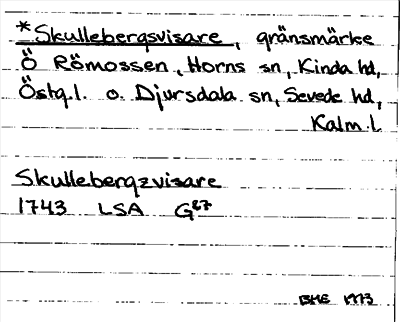 *Skullebergsvisare, gränsmärke
Ö Römossen, Horns sn, Kinda hd,
Östg.l. o. Djursdala sn, Sevede hd,
Kalm.l.
Skullebergzvisare
1743 LSA G67
BHE 1973